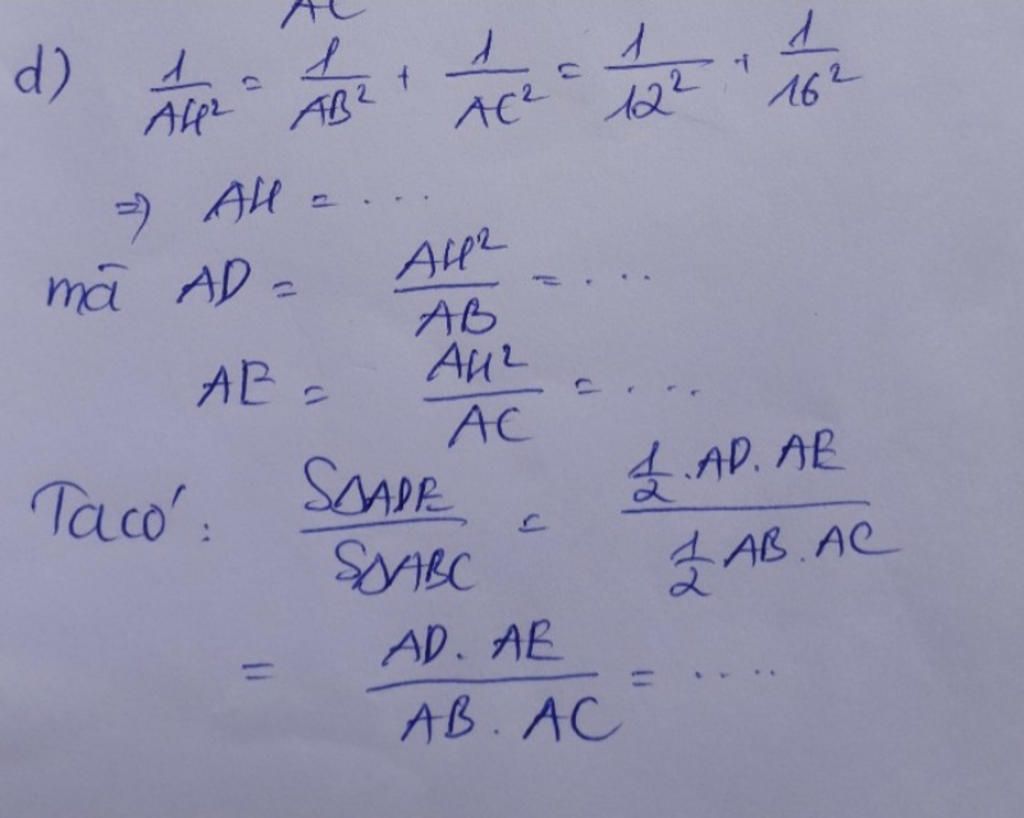 AC
d) 1/AH² = 1/AB² + 1/AC² = 1/12² + 1/16²
⇒ AH = ...
mã AD = AH²/AB = ....
AE = AH²/AC = ....
Ta có : SΔADE/SΔABC = (1/2 . AD . AE)/(1/2 AB . AC)
= (AD . AE)/(AB . AC) = ....